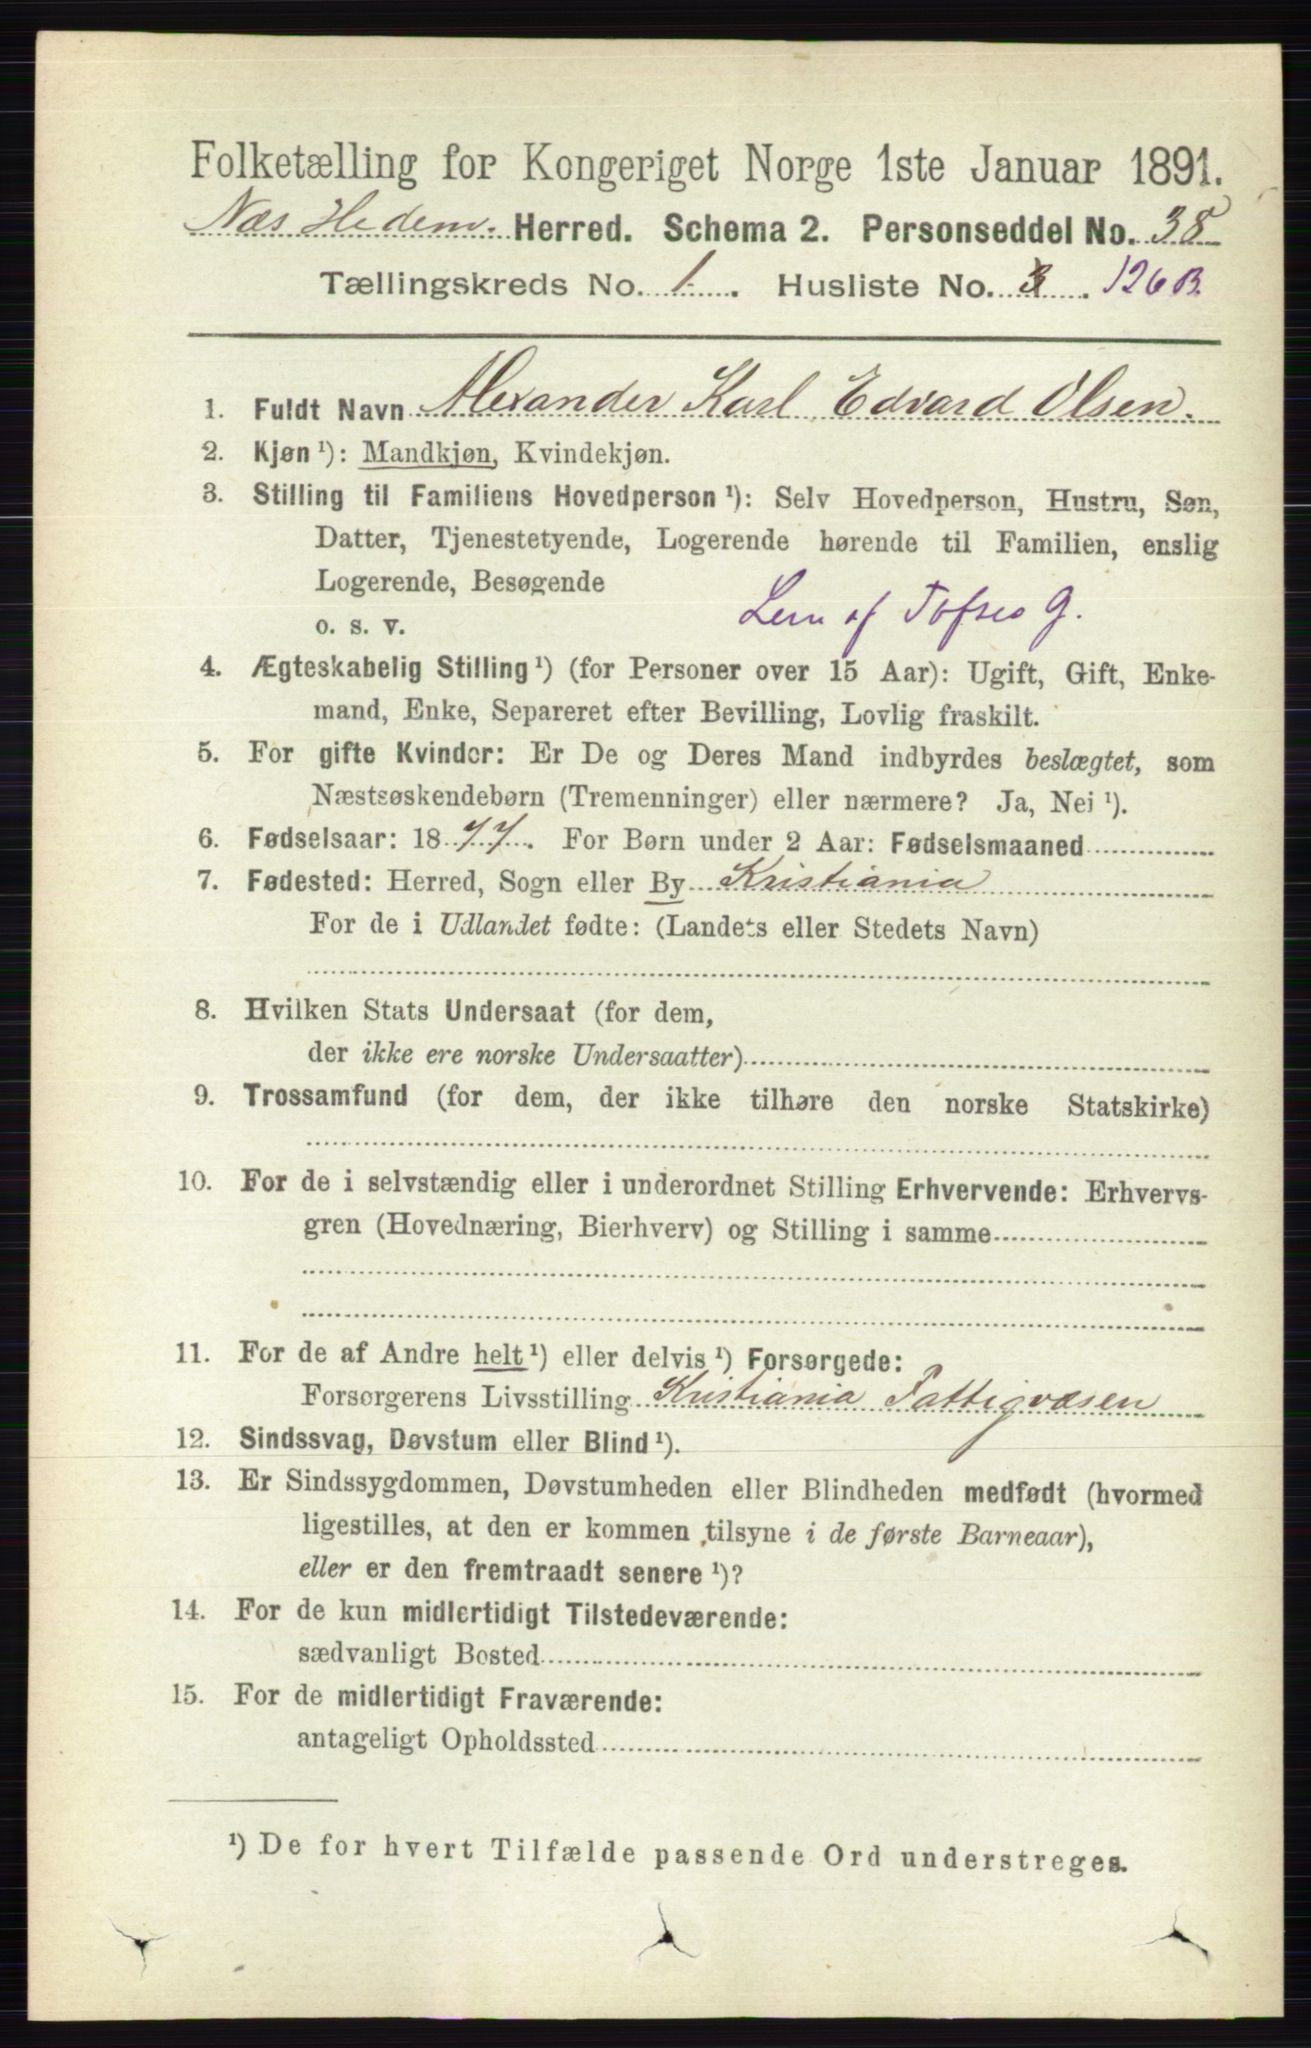 Folketælling for Kongeriget Norge 1ste Januar 1891.
Næs Hedem. Herred. Schema 2. Personseddel No. 38
Tællingskreds No. 1. Husliste No. 3. 126 B.
1. Fuldt Navn Alexander Karl Edvard Olsen.
2. Kjøn ¹): Mandkjøn, Kvindekjøn.
3. Stilling til Familiens Hovedperson ¹): Selv Hovedperson, Hustru, Søn,
Datter, Tjenestetyende, Logerende hørende til Familien, enslig
Logerende, Besøgende
o. s. v. Lem af Toftes G.
4. Ægteskabelig Stilling ¹) (for Personer over 15 Aar): Ugift, Gift, Enke-
mand, Enke, Separeret efter Bevilling, Lovlig fraskilt.
5. For gifte Kvinder: Er De og Deres Mand indbyrdes beslægtet, som
Næstsøskendebørn (Tremenninger) eller nærmere? Ja, Nei ¹).
6. Fødselsaar: 1877. For Børn under 2 Aar: Fødselsmaaned
7. Fødested: Herred, Sogn eller By Kristiania
For de i Udlandet fødte: (Landets eller Stedets Navn)
8. Hvilken Stats Undersaat (for dem,
der ikke ere norske Undersaatter)
9. Trossamfund (for dem, der ikke tilhøre den norske Statskirke)
10. For de i selvstændig eller i underordnet Stilling Erhvervende: Erhvervs-
gren (Hovednæring, Bierhverv) og Stilling i samme
11. For de af Andre helt ¹) eller delvis ¹) Forsørgede:
Forsørgerens Livsstilling Kristiania Fattigvæsen
12. Sindssvag, Døvstum eller Blind ¹).
13. Er Sindssygdommen, Døvstumheden eller Blindheden medfødt (hvormed
ligestilles, at den er kommen tilsyne i de første Barneaar),
eller er den fremtraadt senere ¹)?
14. For de kun midlertidigt Tilstedeværende:
sædvanligt Bosted
15. For de midlertidigt Fraværende:
antageligt Opholdssted
¹) De for hvert Tilfælde passende Ord understreges.